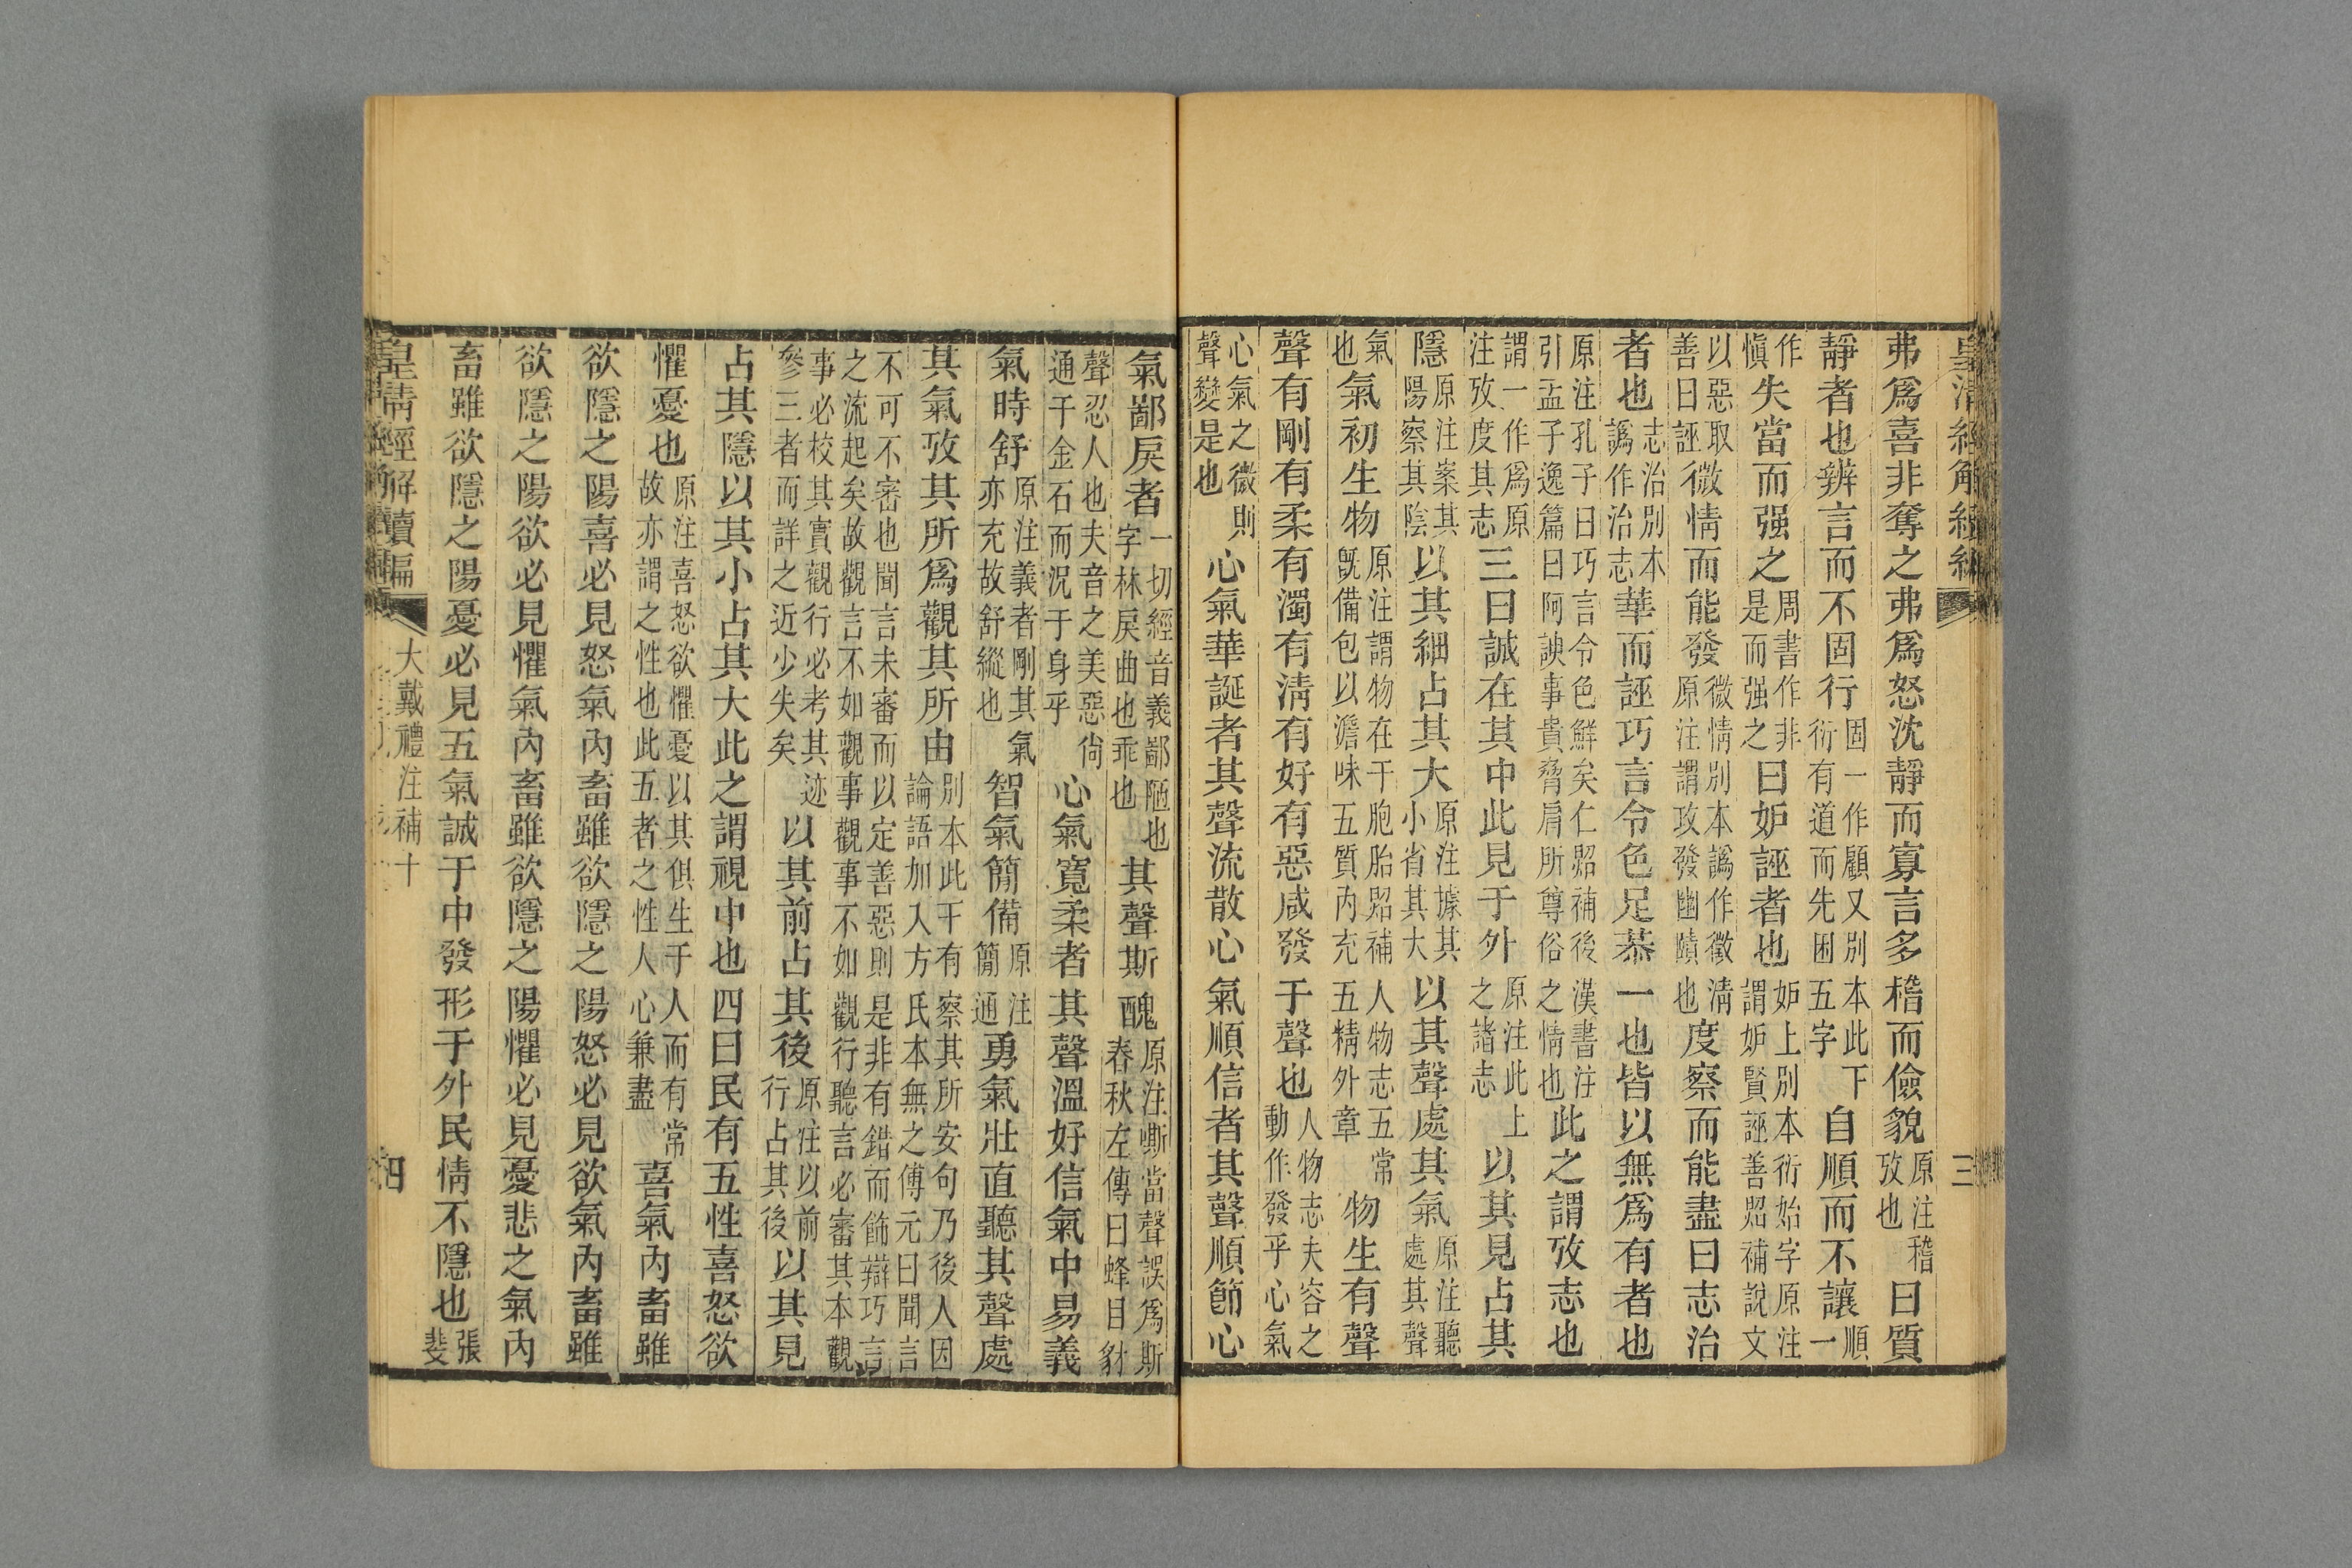 皇清經解續編
三
弗爲喜非奪之弗爲怒沈靜而寡言多稽而儉貌原注稽攷也曰質
靜者也辨言而不固行固一作顧又別本此下衍有道而先困五字自順而不讓一順
作愼失當而强之周書作非是而强之曰妒誣者也妒上別本衍始字原注謂妒賢誣善㷖補說文
以惡取善曰誣徵情而能發微情別本譌作徵清原注謂攻發幽賾也度察而能盡曰志治
者也志治別本譌作治志華而誣巧言令色足恭一也皆以無爲有者也
原注孔子曰巧言令色鮮矣仁㷖補後漢書注引孟子逸篇曰阿諛事貴脅肩所尊俗之情也此之謂攷志也
謂一作爲原注攷度其志三曰誠在其中此見于外原注此上之諸志以其見占其
隱原注案其陽察其陰以其細占其大原注據其小省其大以其聲處其氣原注聽其聲處其
氣也氣初生物原注謂物在于胞胎㷖補人物志五常旣備包以澹味五質內充五精外章物生有聲
聲有剛有柔有濁有淸有好有惡咸發于聲也人物志夫容之動作發乎心氣
心氣之微則聲變是也心氣華誕者其聲流散心氣順信者其聲順節心
氣鄙戾者一切經音義鄙陋也字林戾曲也乖也其聲斯醜原注嘶當聲誤爲斯春秋左傳曰蜂目豺
聲忍人也夫音之美惡尙通于金石而況于身乎心氣寬柔者其聲溫好信氣中易義
氣時舒原注義者剛其氣亦充故舒縱也智氣簡備原注簡通勇氣壯直聽其聲處
其氣攷其所爲觀其所由別本此下有察其所安句乃後人因論語加入方氏本無之傅元曰聞言
不可不審也聞言未審而以定善惡則是非有錯而飾辯巧言之流起矣故觀言不如觀事觀事不如觀行聽言必審其本觀
事必校其實觀行必考其迹參三者而詳之近少失矣以其前占其後原注以前行占其後以其見
占其隱以其小占其大此之謂視中也四曰民有五性喜怒欲
懼憂也原注喜怒欲懼憂以其俱生于人而有常故亦謂之性也此五者之性人心兼盡喜氣內畜雖
欲隱之陽喜必見怒氣內畜雖欲隱之陽怒必見欲氣內畜雖
欲隱之陽欲必見懼氣內畜雖欲隱之陽懼必見憂悲之氣內
畜雖欲隱之陽憂必見五氣誠于中發形于外民情不隱也張斐
皇清經解續編 大戴禮注補十 四